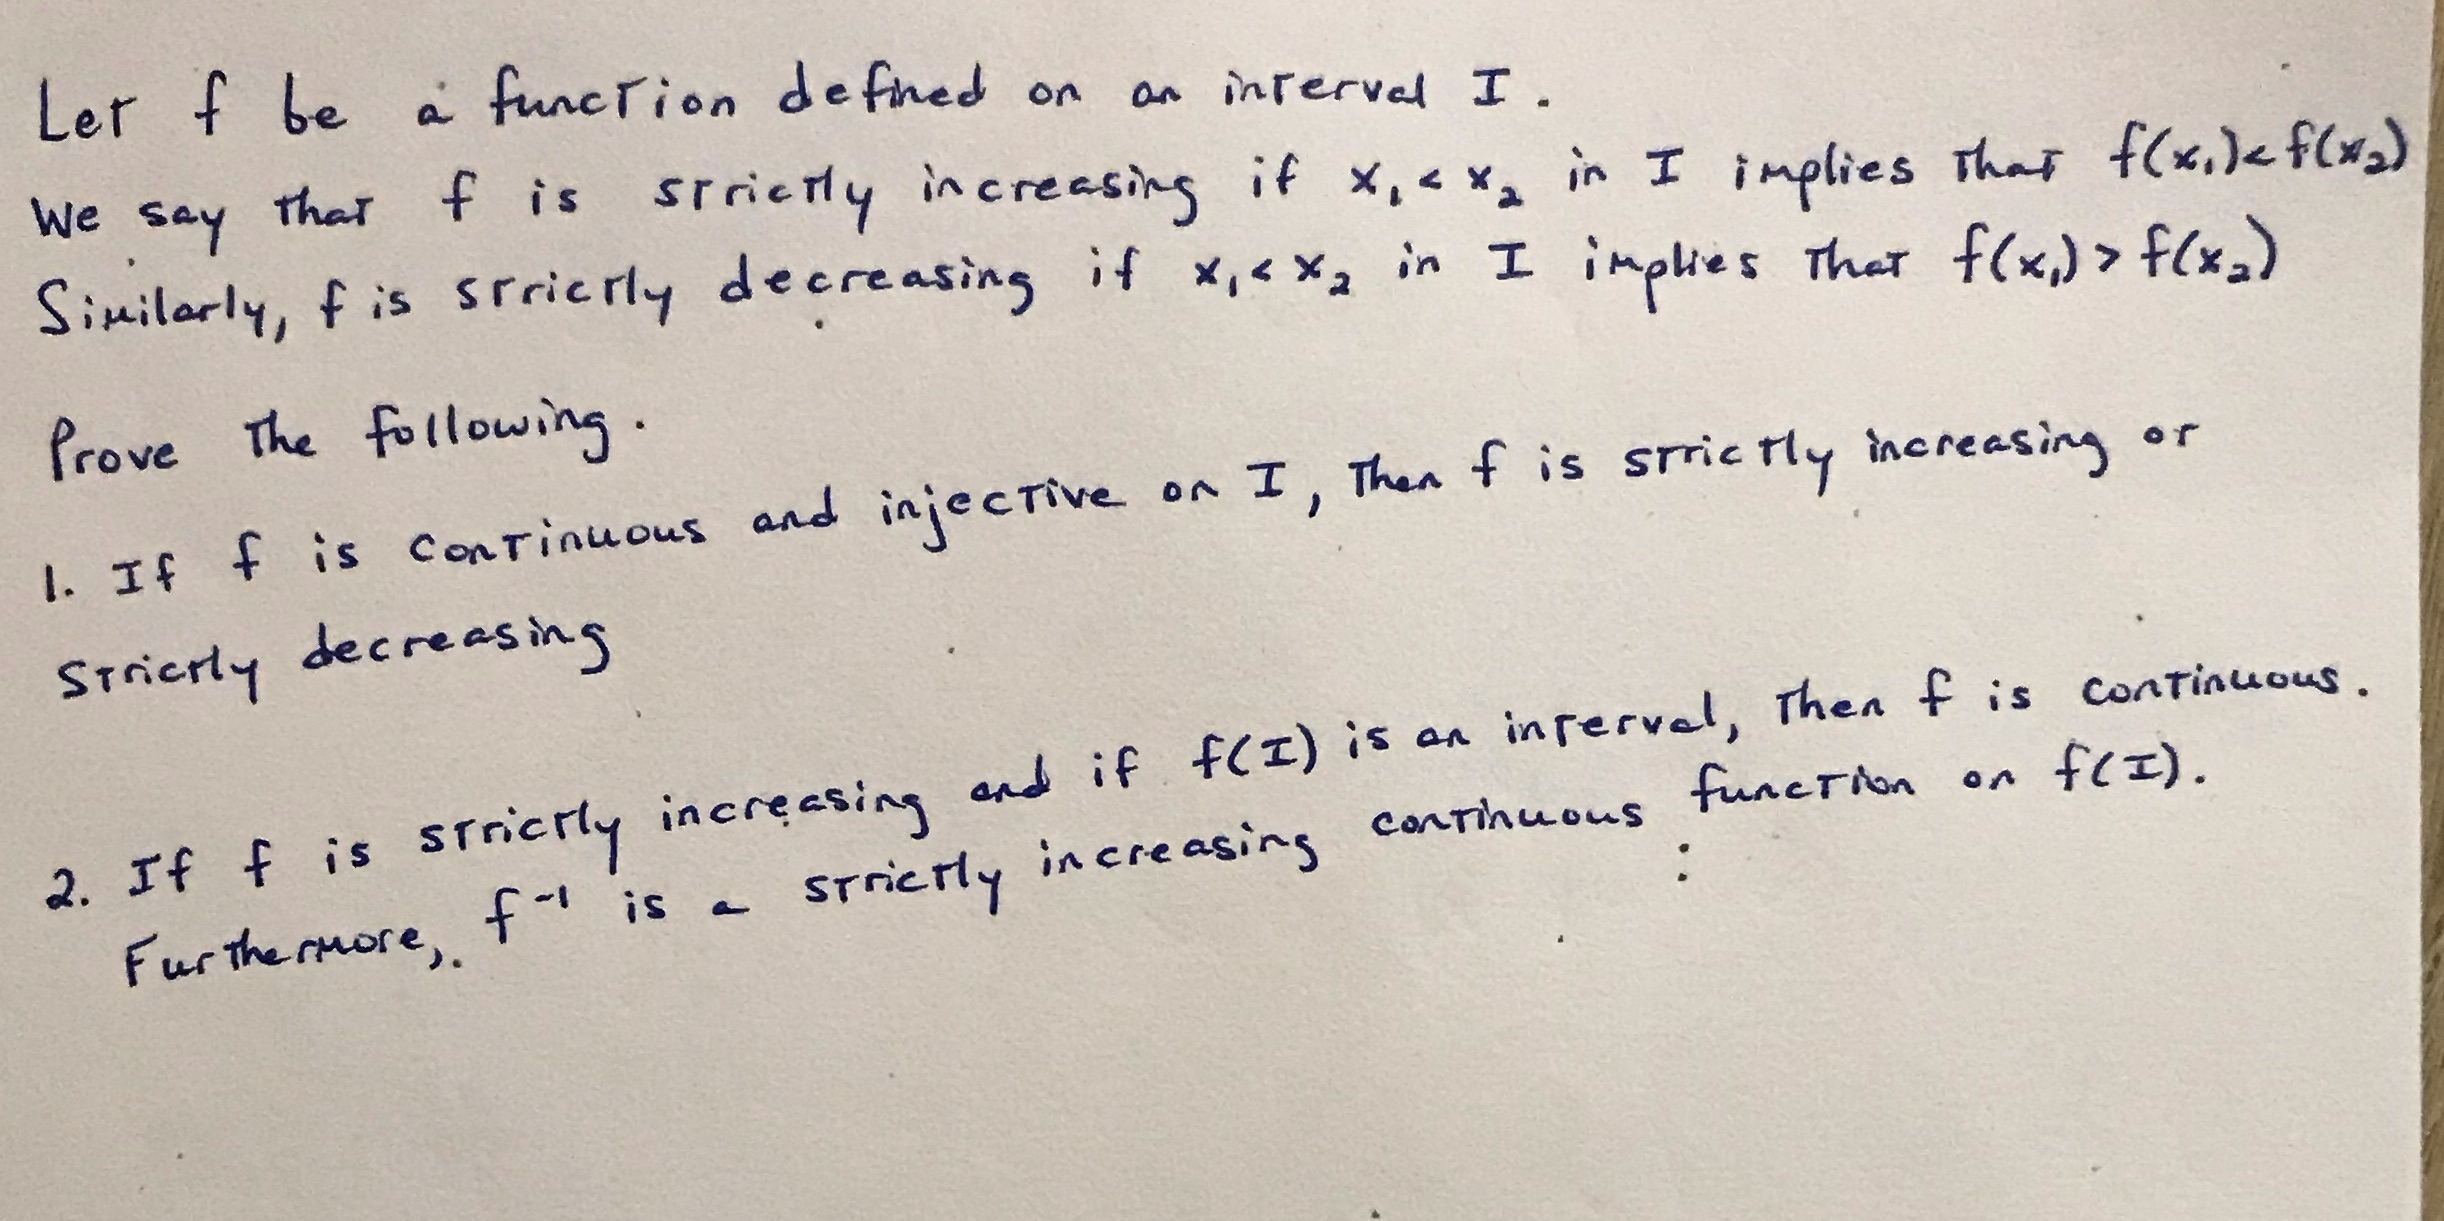 Let f be a function defined on an interval I.
We say that f is strictly increasing if x₁ < x₂ in I implies that f(x₁)<f(x₂)
Similarly, f is strictly decreasing if x₁< x₂ in I implies that f(x₁) > f(x₂)
Prove the following.
1. If f is continuous and injective on I, then f is strictly increasing or
strictly decreasing
2. If f is strictly increasing and if f(I) is an interval, then f is continuous.
Furthermore, f⁻¹ is a strictly increasing continuous function on f(I).